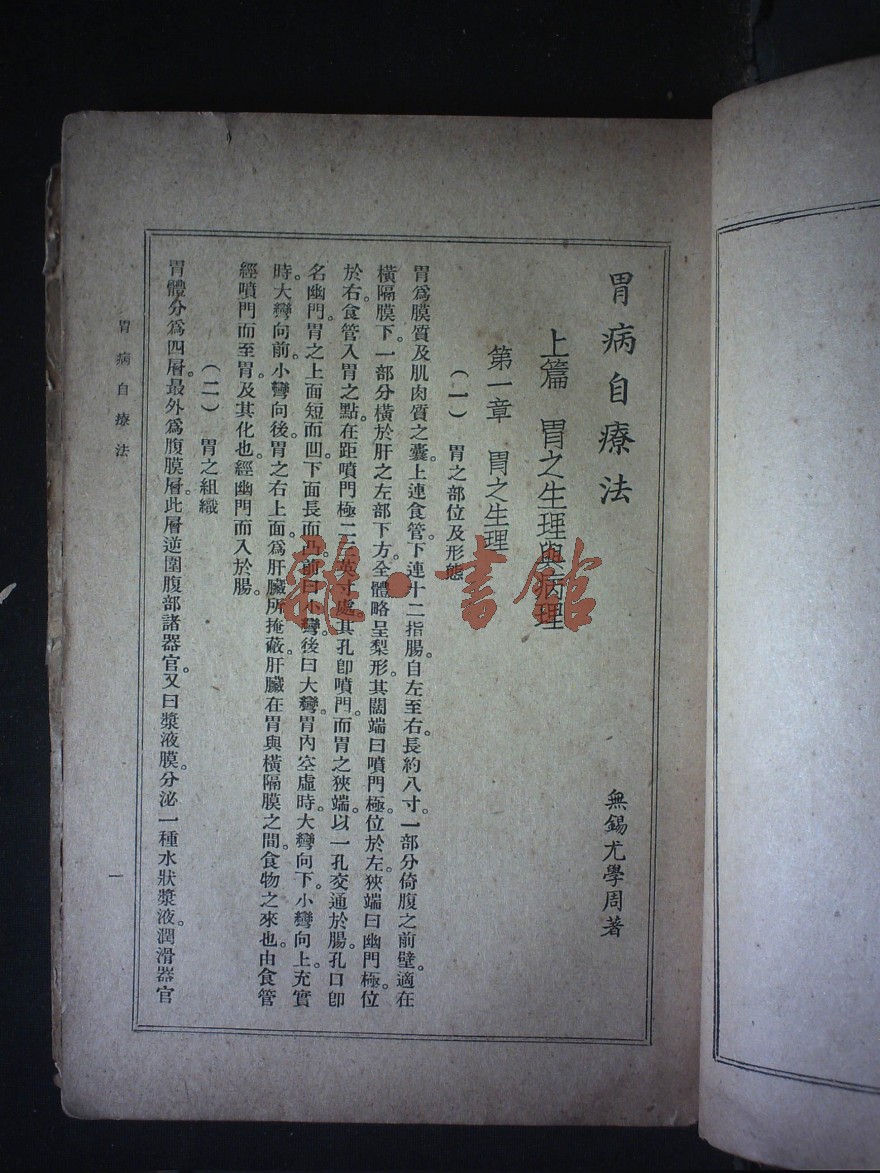 胃病自療法
無錫尤學周著
上篇 胃之生理與病理
第一章 胃之生理
(一) 胃之部位及形態
胃爲膜質及肌肉質之囊。上連食管。下連十二指腸。自左至右。長約八寸。一部分倚腹之前壁。適在
橫隔膜下。一部分橫於肝之左部下方。全體略呈梨形。其闊端曰噴門極。位於左。狹端曰幽門極。位
於右。食管入胃之點。在距噴門極二三英寸處。其孔卽噴門。而胃之狹端。以一孔交通於腸。孔口卽
名幽門。胃之上面短而凹。下面長而凸。前曰小彎。後曰大彎。胃內空虛時。大彎向下。小彎向上。充實
時。大彎向前。小彎向後。胃之右上面。爲肝臟所掩蔽。肝臟在胃與橫隔膜之間。食物之來也。由食管
經噴門而至胃。及其化也。經幽門而入於腸。
(二) 胃之組織
胃體分爲四層。最外爲腹膜層。此層逆圍腹部諸器官。又曰漿液膜。分泌一種水狀漿液。潤滑器官
胃病自療法
一
雜·書館